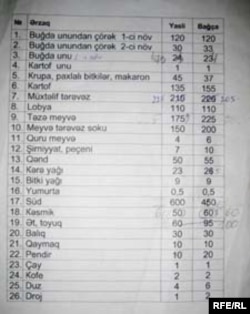 № Ərzaq Yasli Bağça
1. Buğda unundan çörək 1-ci növ 120 120
2. Buğda unundan çörək 2-ci növ 30 33
3. Buğda unu 24 23
4. Kartof unu 1 1
5. Krupa, paxlalı bitkilər, makaron 45 37
6. Kartof 135 155
7. Müxtəlif tərəvəz 210 226
8. Lobya 110 110
9. Təzə meyvə 175 225
10. Meyvə tərəvəz soku 150 200
11. Quru meyvə 4 6
12. Şirniyyat, peçeni 7 10
13. Qənd 50 55
14. Kərə yağı 23 26
15. Bitki yağı 9 9
16. Yumurta 0,5 0,5
17. Süd 600 450
18. Kəsmik 50 60
19. Ət, toyuq 60 95
20. Balıq 30 30
21. Qaymaq 10 10
22. Pendir 10 20
23. Çay 1 1
24. Kofe 2 2
25. Duz 4 6
26. Droj 1 2
RFE/RL